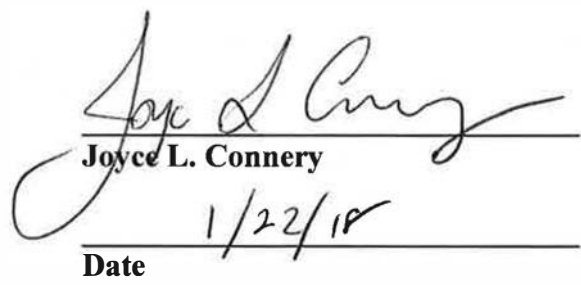 Joyce L Connery
Joyce L. Connery
1/22/18
Date